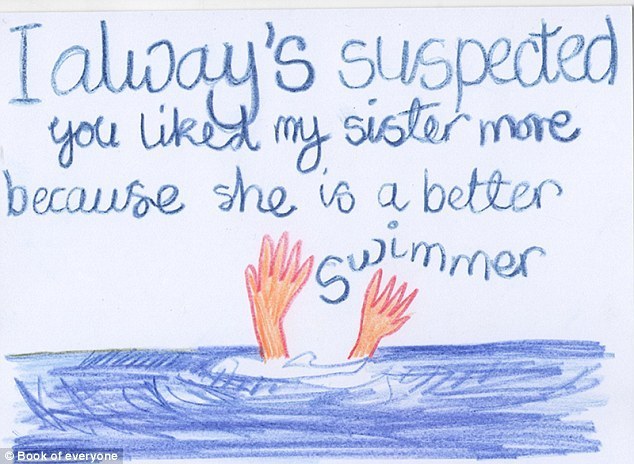 I alway's suspected
you liked my sister more
because she is a better
swimmer
© Book of everyone